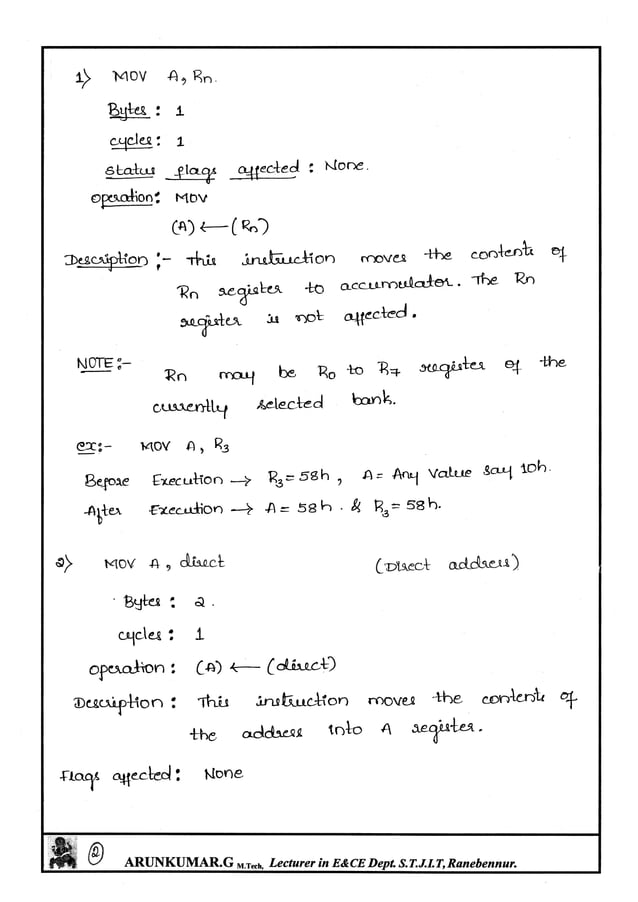 1) MOV A, Rn.
Bytes : 1
cycles : 1
Status flags affected : None.
Operation : MOV
(A) ← (Rn)
Description :- This instruction moves the contents of
Rn register to accumulator. The Rn
register is not affected.
NOTE :-
Rn may be R0 to R7 register of the
currently selected bank.
ex:- MOV A, R3
Before Execution → R3 = 58h, A = Any Value say 10h.
After Execution → A = 58h. & R3 = 58h.
2) MOV A, direct (Direct address)
Bytes : 2.
cycles : 1
operation : (A) ← (direct)
Description : This instruction moves the contents of
the address into A register.
Flags affected : None
2
ARUNKUMAR.G M.Tech, Lecturer in E&CE Dept. S.T.J.I.T, Ranebennur.